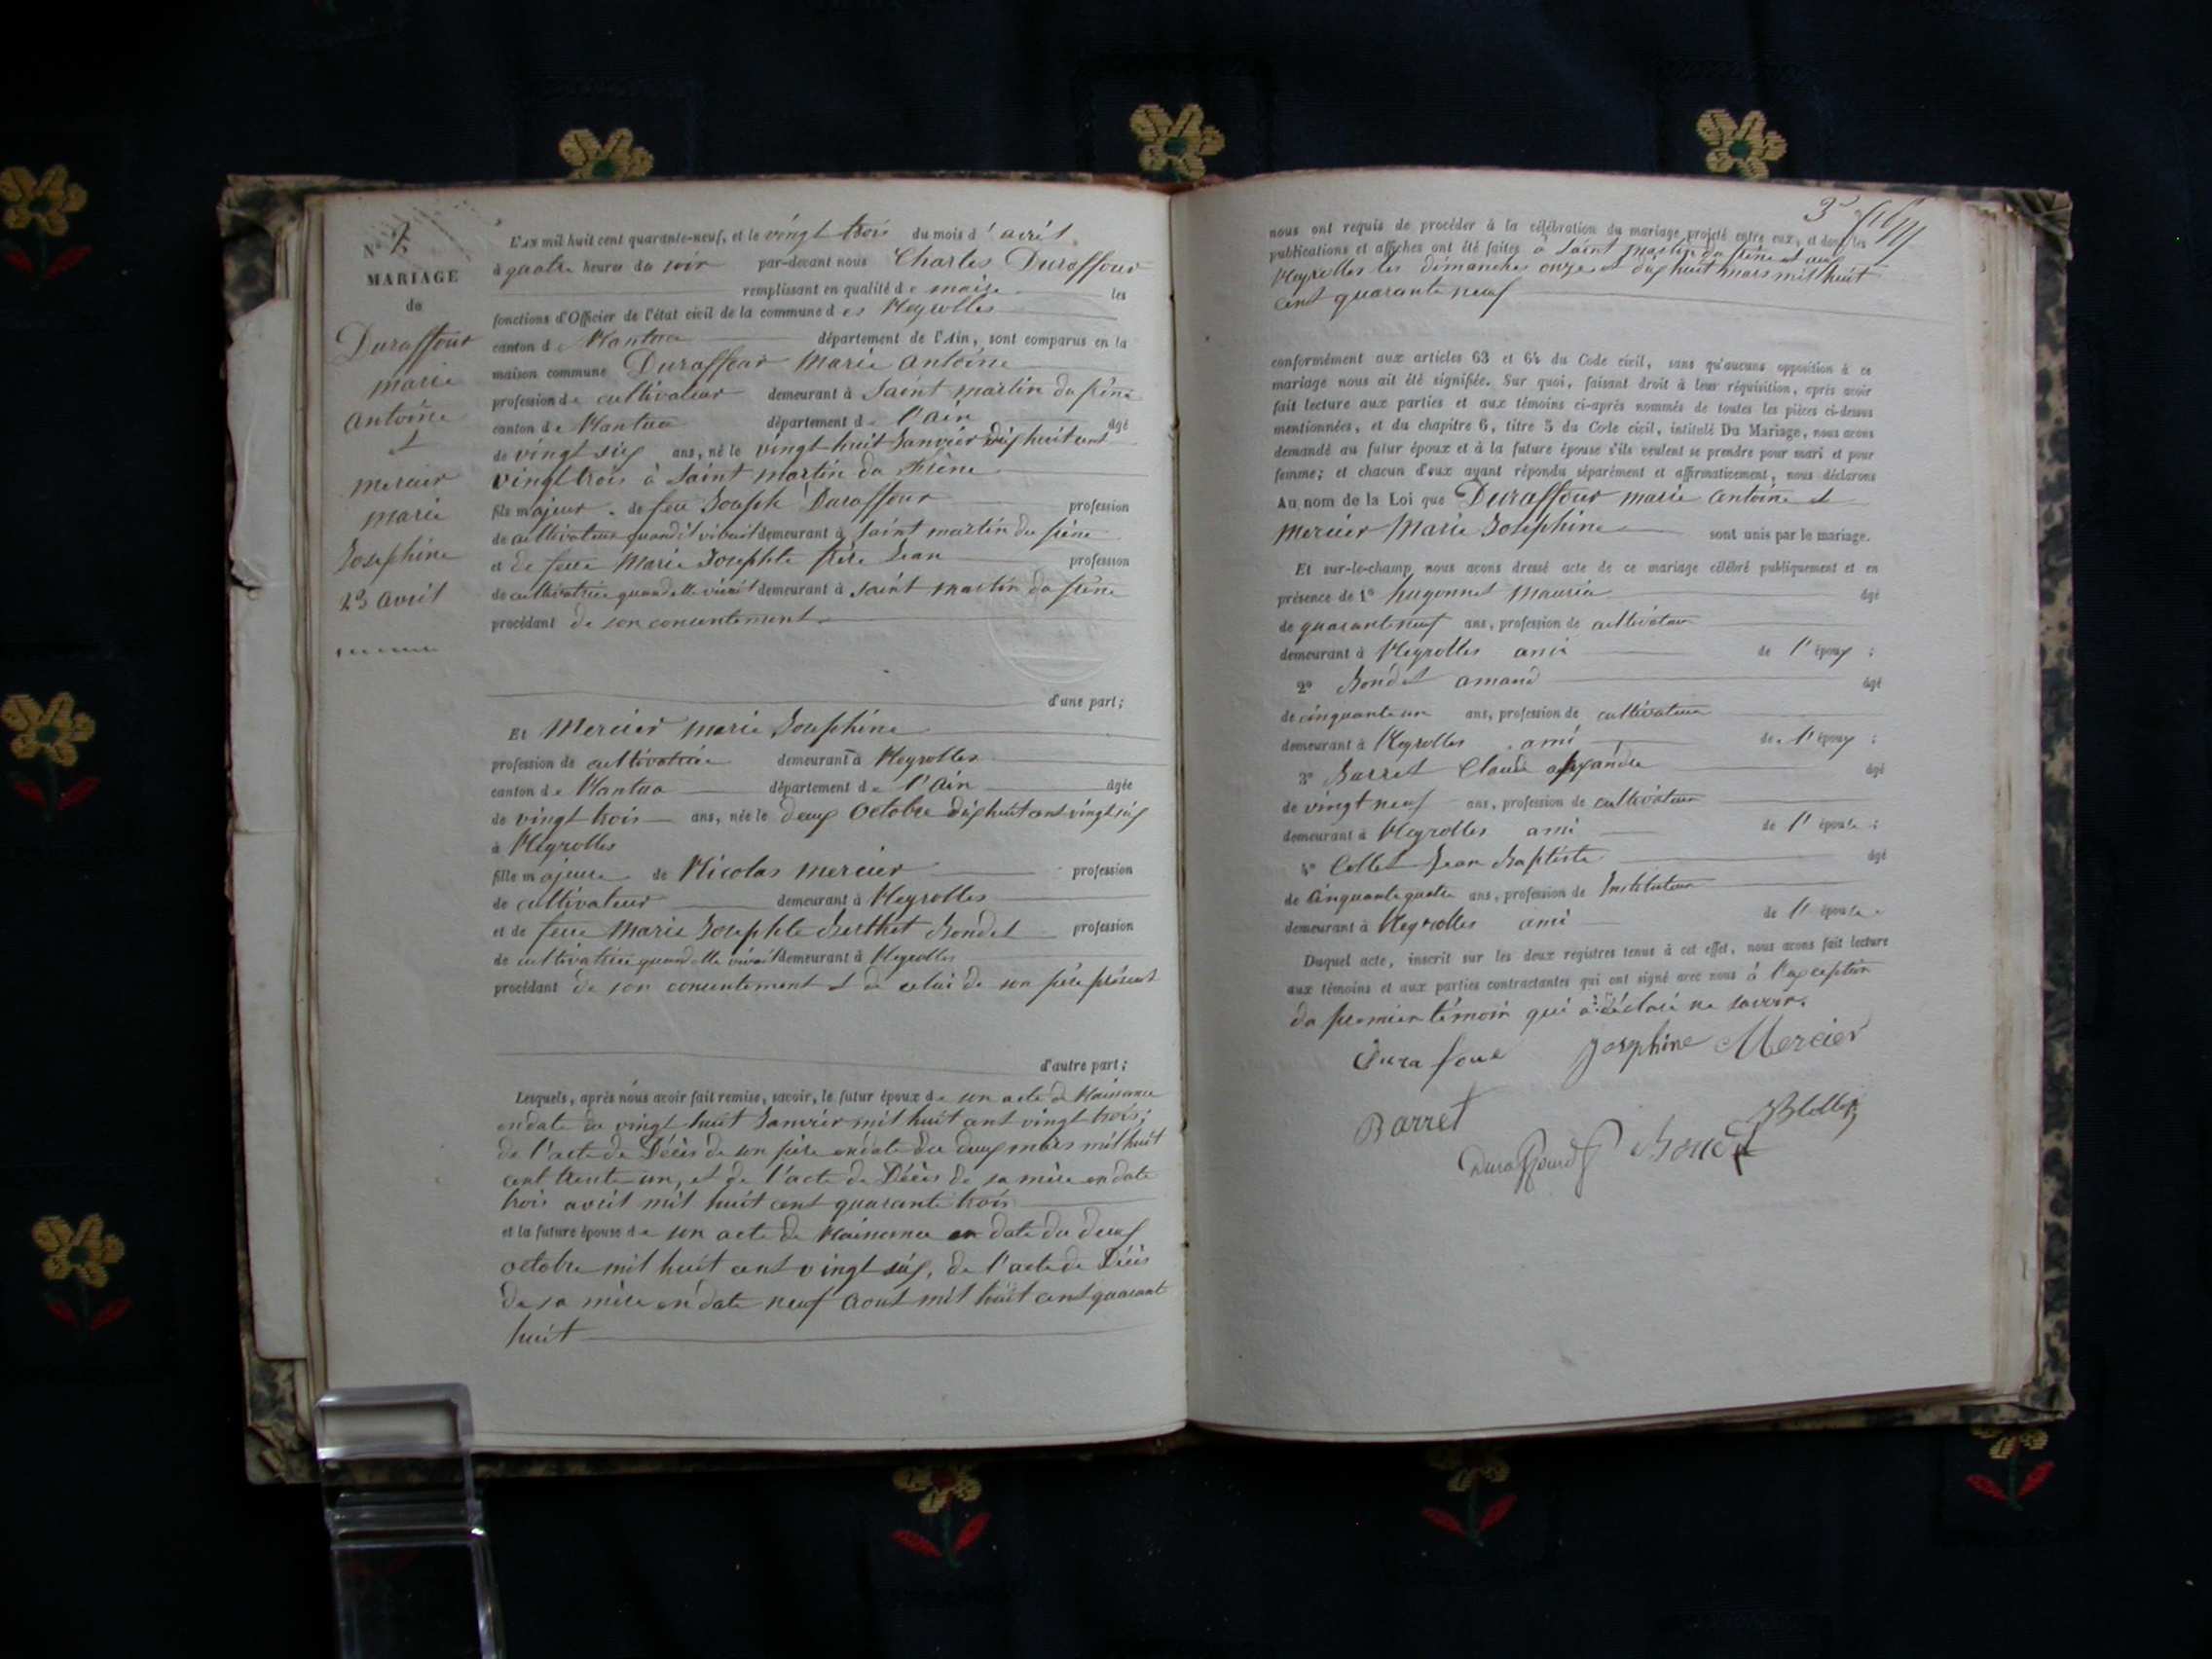 N° 1.
MARIAGE
de
Duraffour
marie
antoine
et
mercier
marie
Josephine
23 avril
L'AN mil huit cent quarante-neuf, et le vingt trois du mois d'avril
à quatre heures du soir par-devant nous Charles Duraffour
remplissant en qualité de maire les
fonctions d'Officier de l'état civil de la commune des Neyrolles
canton de Nantua département de l'Ain, sont comparus en la
maison commune Duraffour Marie antoine
profession de cultivateur demeurant à Saint martin du frêne
canton de Nantua département de l'ain âgé
de vingt six ans, né le vingt huit Janvier dix huit cent
vingt trois à Saint martin du frêne
fils majeur de feu Joseph Duraffour profession
de cultivateur quand il vivait demeurant à Saint martin du frêne
et de feue Marie Josephte frère Jean profession
de cultivatrice quand elle vivait demeurant à Saint martin du frêne
procédant de son consentement
d'une part;
Et Mercier marie Josephine
profession de cultivatrice demeurant à Neyrolles
canton de Nantua département de l'ain âgée
de vingt trois ans, née le deux Octobre dix huit cent vingt six
à Neyrolles
fille majeure de Nicolas mercier profession
de cultivateur demeurant à Neyrolles
et de feue Marie Josephte Berthet Bondet profession
de cultivatrice quand elle vivait demeurant à Neyrolles
procédant de son consentement et de celui de son père présent
d'autre part;
Lesquels, après nous avoir fait remise, savoir, le futur époux de son acte de Naissance
en date du vingt huit Janvier mil huit cent vingt trois;
de l'acte de Décès de son père en date du deux mars mil huit
cent trente un, et de l'acte de Décès de sa mère en date
trois avril mil huit cent quarante trois
et la future épouse de son acte de Naissance en date du deux
octobre mil huit cent vingt six, de l'acte de Décès
de sa mère en date neuf aout mil huit cent quarant
huit
3
nous ont requis de procéder à la célébration du mariage projeté entre eux, et dont les
publications et affiches ont été faites à Saint martin du frêne et aux
Neyrolles les dimanches onze et dix huit mars mil huit
cent quarante neuf
conformément aux articles 63 et 64 du Code civil, sans qu'aucune opposition à ce
mariage nous ait été signifiée. Sur quoi, faisant droit à leur réquisition, après avoir
fait lecture aux parties et aux témoins ci-après nommés de toutes les pièces ci-dessus
mentionnées, et du chapitre 6, titre 5 du Code civil, intitulé Du Mariage, nous avons
demandé au futur époux et à la future épouse s'ils veulent se prendre pour mari et pour
femme; et chacun d'eux ayant répondu séparément et affirmativement, nous déclarons
Au nom de la Loi que Duraffour marie antoine et
mercier Marie Josephine sont unis par le mariage.
Et sur-le-champ nous avons dressé acte de ce mariage célébré publiquement et en
présence de 1° hugonnet Mauria âgé
de quarante neuf ans, profession de cultivateur
demeurant à Neyrolles ami de l'époux;
2° Bondet amand âgé
de cinquante un ans, profession de cultivateur
demeurant à Neyrolles ami de l'époux;
3° Barret Claude alexandre âgé
de vingt neuf ans, profession de cultivateur
demeurant à Neyrolles ami de l'épouse;
4° Collet Jean Baptiste âgé
de cinquante quatre ans, profession de Instituteur
demeurant à Neyrolles ami de l'épouse.
Duquel acte, inscrit sur les deux registres tenus à cet effet, nous avons fait lecture
aux témoins et aux parties contractantes qui ont signé avec nous à l'exception
du premier témoin qui a déclaré ne savoir.
Durafour Josephine Mercier
Barret
Duraffourd Bondet